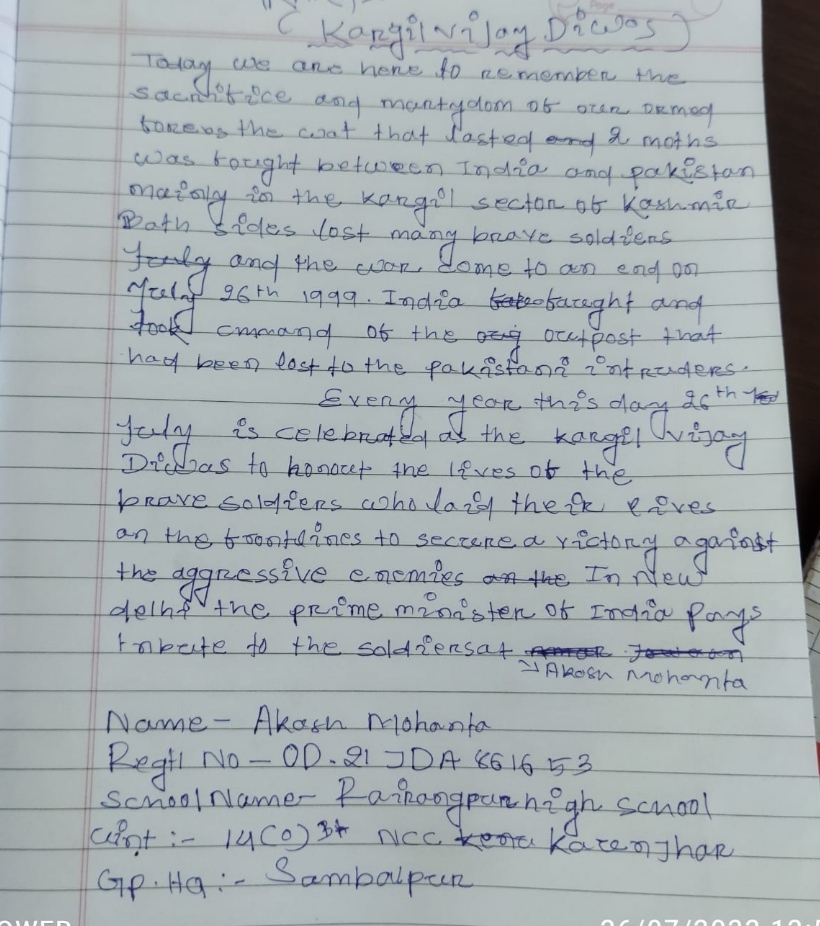 ( Kargil Vijay Diwas )
Today we are here to remember the
sacrifice and martydom of our armed
forces the wat that lasted and 2 moths
was fought between India and pakistan
mainly in the Kargil sector of Kashmir
Both sides lost many brave soldiers
July and the war come to an end on
July 26th 1999. India faught and
took cmmand of the outpost that
had been lost to the pakistani intruders.
Every year this day 26th
July is celebrated as the Kargil Vijay
Diwas to honour the lives of the
brave soldiers who laid their lives
on the frontlines to secure a victory against
the aggressive enemies on the In New
delhi the prime minister of India pays
tribute to the soldiersat
Akash Mohanta
Name - Akash Mohanta
Regtl No - OD.21 JDA 861653
School Name - Rairangpur high school
Uint :- 14(O) NCC Keonjhar
GP. HQ :- Sambalpur